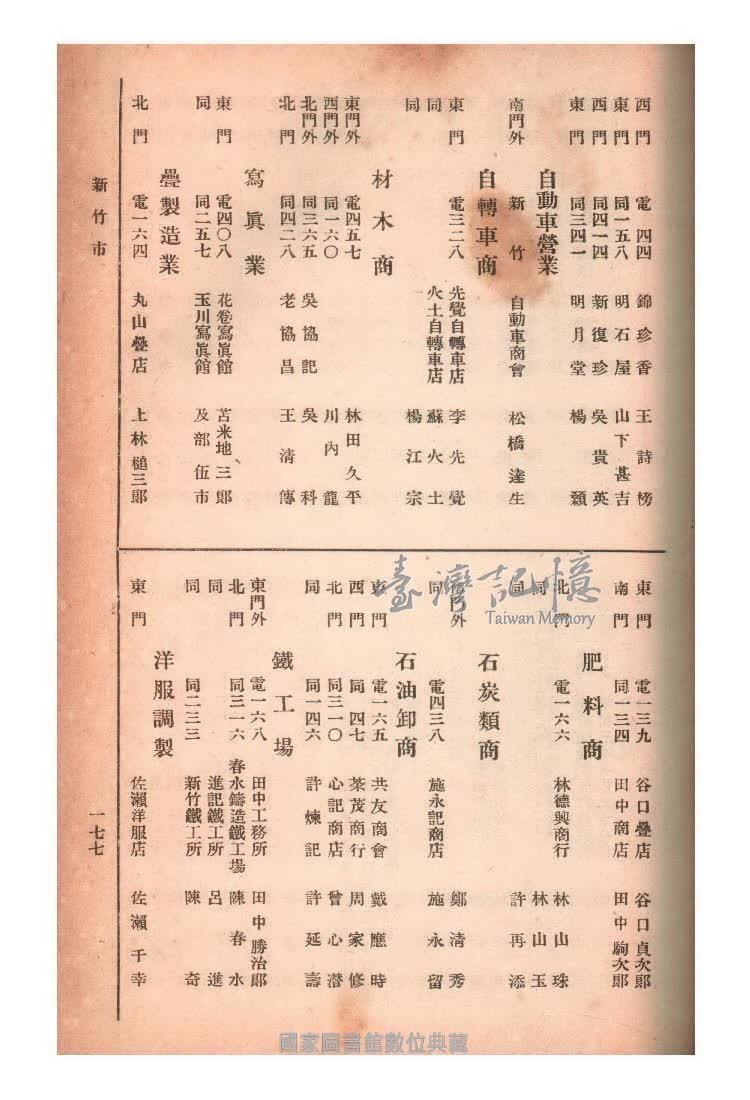 西門 電四四 錦珍香 王詩榜
東門 同一五八 明石屋 山下甚吉
西門 同四一四 新復珍 吳貴英
東門 同三四一 明月堂 楊灝
自動車營業
南門外 新竹自動車商會 松橋達生
自轉車商
東門 電三二八 先覺自轉車店 李先覺
同 火土自轉車店 蘇火土
同 楊江宗
材木商
東門外 電四五七 林田久平
西門外 同一六〇 川內龍
北門外 同三六五 吳協記 吳科
北門 同四二八 老協昌 王清傳
寫眞業
東門 電四〇八 花卷寫眞館 苫米地三郞
同 同二五七 玉川寫眞館 及部伍市
疊製造業
北門 電一六四 丸山疊店 上林槌三郞
東門 電一三九 谷口疊店 谷口貞次郞
南門 同一三四 田中商店 田中駒次郞
肥料商
北門 電一六六 林德興商行 林山珠
同 林山玉
同 許再添
石炭類商
南門外 鄭清秀
同 電四三八 施永記商店 施永留
石油卸商
東門 電一六五 共友商會 戴應時
西門 同四七 茶茂商行 周家修
北門 同三一〇 心記商店 曾心潛
同 同一四六 許煉記 許延壽
鐵工場
東門外 電一六八 田中工務所 田中勝治郞
北門 同三一六 春水鑄造鐵工場 陳春水
同 進記鐵工所 呂進
同 同二三三 新竹鐵工所 陳奇
洋服調製
東門 佐瀨洋服店 佐瀨千幸
新竹市
一七七
臺灣記憶
Taiwan Memory
國家圖書館數位典藏